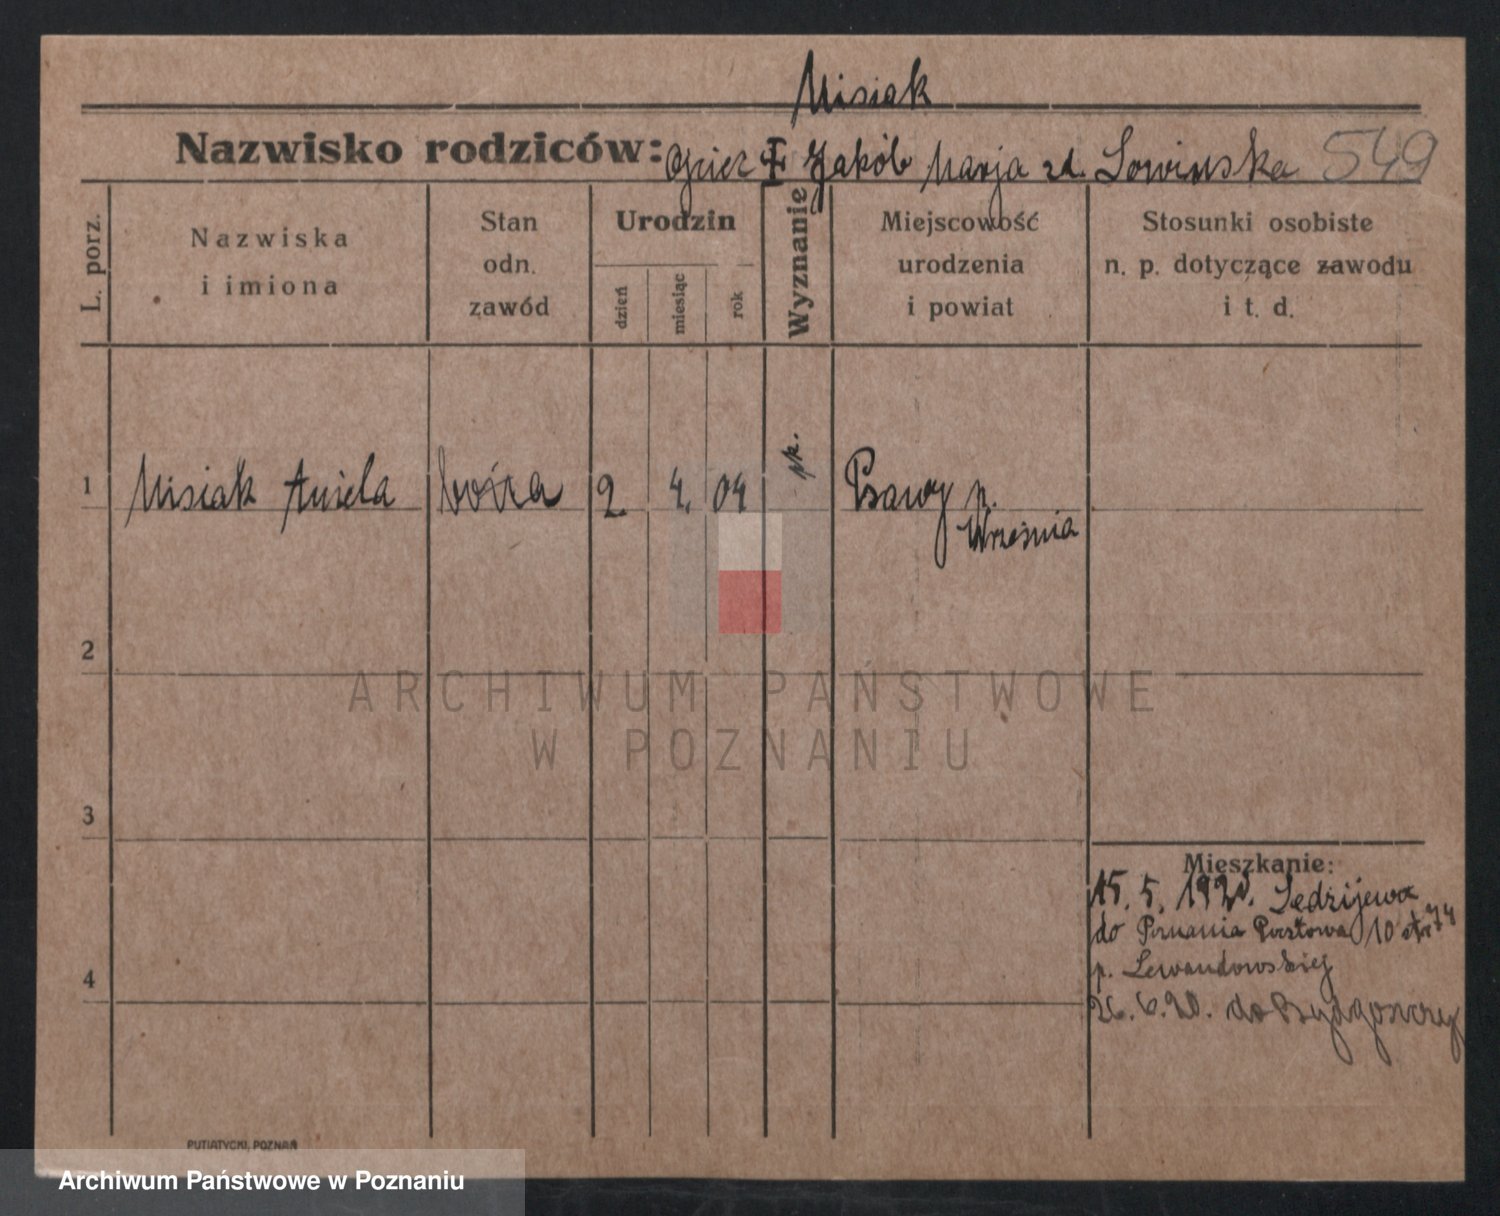 Misiak
Nazwisko rodziców: Ojciec Jakób Marja zd. Lowinska 549
L. porz.
Nazwiska i imiona
Stan odn. zawód
Urodzin
dzień miesiąc rok
Wyznanie
Miejscowość urodzenia i powiat
Stosunki osobiste n. p. dotyczące zawodu i t. d.
1 Misiak Aniela 2 4. 04 Psary p.
Września
2
ARCHIWUM PAŃSTWOWE
W POZNANIU
3
Mieszkanie:
15. 5. 1920.
do Poznania Pocztowa 10
p. Lewandowskiej
4
26. 6. 20. do Bydgoszczy
PUTIATYCKI, POZNAŃ
Archiwum Państwowe w Poznaniu